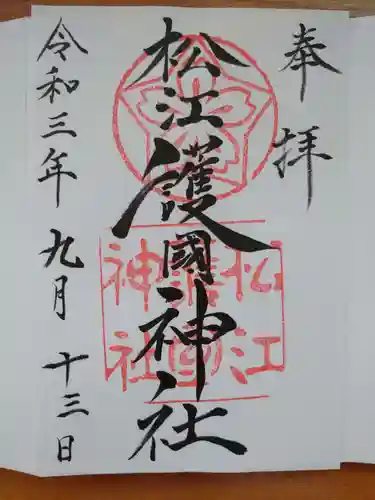 奉拝
松江護國神社
松江
護國
神社
令和三年九月十三日